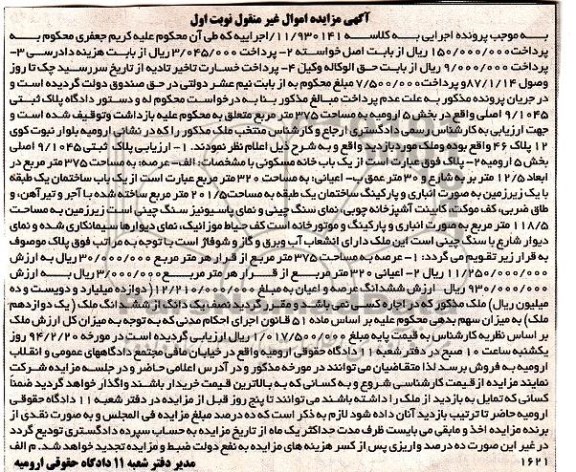 آگهی مزایده اموال غیر منقول نوبت اول
به موجب پرونده اجرایی به کلاسه ۱۱/۹۳۰۱۴۱/اجراییه که طی آن محکوم علیه کریم جعفری محکوم به
پرداخت۱۵۰/۰۰۰/۰۰۰ ریال از بابت اصل خواسته ۲- پرداخت ۳/۰۴۵/۰۰۰ ریال از بابت هزینه دادرسی ۳-
پرداخت ۹/۰۰۰/۰۰۰ ریال از بابت حق الوکاله وکیل ۴- پرداخت خسارت تاخیر تادیه از تاریخ سررسید چک تا روز
وصول ۸۷/۱/۱۴و ۵-پرداخت۷/۵۰۰/۰۰۰ مبلغ محکوم به از بابت نیم عشر دولتی در حق صندوق دولت گردیده است و
در جریان پرونده مذکور به علت عدم پرداخت مبالغ مذکور بنا به درخواست محکوم له و دستور دادگاه پلاک ثبتی
۹/۱۰۴۵ اصلی واقع در بخش ۵ ارومیه به مساحت ۳۷۵ متر مربع متعلق به محکوم علیه بازداشت وتوقیف شده است و
جهت ارزیابی به کارشناس رسمی دادگستری ارجاع و کارشناس منتخب ملک مذکور را که در نشانی ارومیه بلوار نبوت کوی
۱۲ پلاک ۴۶ واقع بوده وملک مورد بازدید واقع و به شرح ذیل اعلام نظر نمودند. ۱- ارزیابی پلاک ثبتی ۹/۱۰۴۵ اصلی
بخش ۵ ارومیه۲- پلاک فوق عبارت است از یک باب خانه مسکونی با مشخصات: الف-عرصه: به مساحت ۳۷۵ متر مربع در
ابعاد ۱۲/۵ متر بر به شارع و ۳۰ متر عمق ب- اعیانی: به مساحت ۳۲۰ متر مربع عبارت است از یک باب ساختمان یک طبقه
با یک زیرزمین به صورت انباری و پارکینگ ساختمان یک طبقه به مساحت۲۰۱/۵ متر مربع ساخته شده با آجر و تیرآهن، و
طاق ضربی، کف موکت، کابینت آشپزخانه چوبی، نمای سنگ چینی و نمای پاسیونیز سنگ چینی است زیرزمین به مساحت
۱۱۸/۵ متر مربع به صورت انباری و پارکینگ و موتورخانه است کف حیاط موزائیک، نمای دیوارها سیمانکاری شده و نمای
دیوار شارع با سنگ چینی است این ملک دارای انشعاب آب وبرق و گاز و شوفاژ است با توجه به مراتب فوق پلاک موصوف
به قرار زیر تقویم می گردد: ۱-عرصه به مساحت ۳۷۵ متر مربع از قرار هر متر مربع ۳۰/۰۰۰/۰۰۰ ریال به ارزش
۱۱/۲۵۰/۰۰۰/۰۰۰ ریال ۲- اعیانی ۳۲۰ متر مربع از قرار هر متر مربع ۳/۰۰۰/۰۰۰ ریال به ارزش
۹۳۰/۰۰۰/۰۰۰ ریال ارزش ششدانگ عرصه و اعیان به مبلغ ۱۲/۲۱۰/۰۰۰/۰۰۰ (دوازده میلیارد و دویست و ده
میلیون ریال) ملک مذکور که در اجاره کسی نمی باشد و مقرر گردید نصف یک دانگ از ششدانگ ملک ( یک دوازدهم
ملک) به میزان سهم بدهی محکوم علیه بر اساس ماده ۵۱ قانون اجرای احکام مدنی که به توجه به میزان کل ارزش ملک
بر اساس نظریه کارشناس به قیمت پایه مبلغ ۱/۰۱۷/۵۰۰/۰۰۰ ریال ارزیابی گردیده است در مورخه ۹۴/۲/۲۰ روز
یکشنبه ساعت ۱۰ صبح در دفتر شعبه ۱۱ دادگاه حقوقی ارومیه واقع در خیابان مافی مجتمع دادگاههای عمومی و انقلاب
ارومیه به فروش برسد لذا متقاضیان می توانند در مورخه مذکور و در آدرس اعلامی حاضر و در جلسه مزایده شرکت
نمایند مزایده از قیمت کارشناسی شروع و به کسانی که به بالاترین قیمت خریدار باشند واگذار خواهد گردید ضمناً
کسانی که تمایل به بازدید از ملک را داشته باشند می توانند تا پنج روز قبل از مزایده در دفتر شعبه ۱۱ دادگاه حقوقی
ارومیه حاضر تا ترتیب بازدید آنان داده شود لازم به ذکر است که ده درصد مبلغ مزایده فی المجلس و به صورت نقدی از
برنده مزایده اخذ و مابقی می بایست ظرف مدت حداکثر یک ماه از تاریخ مزایده به حساب سپرده دادگستری تودیع گردد
در غیر این صورت ده درصد واریزی پس از کسر هزینه های مزایده به نفع دولت ضبط و مزایده تجدید خواهد شد. م الف
۱۶۲۱ مدیر دفتر شعبه ۱۱ دادگاه حقوقی ارومیه